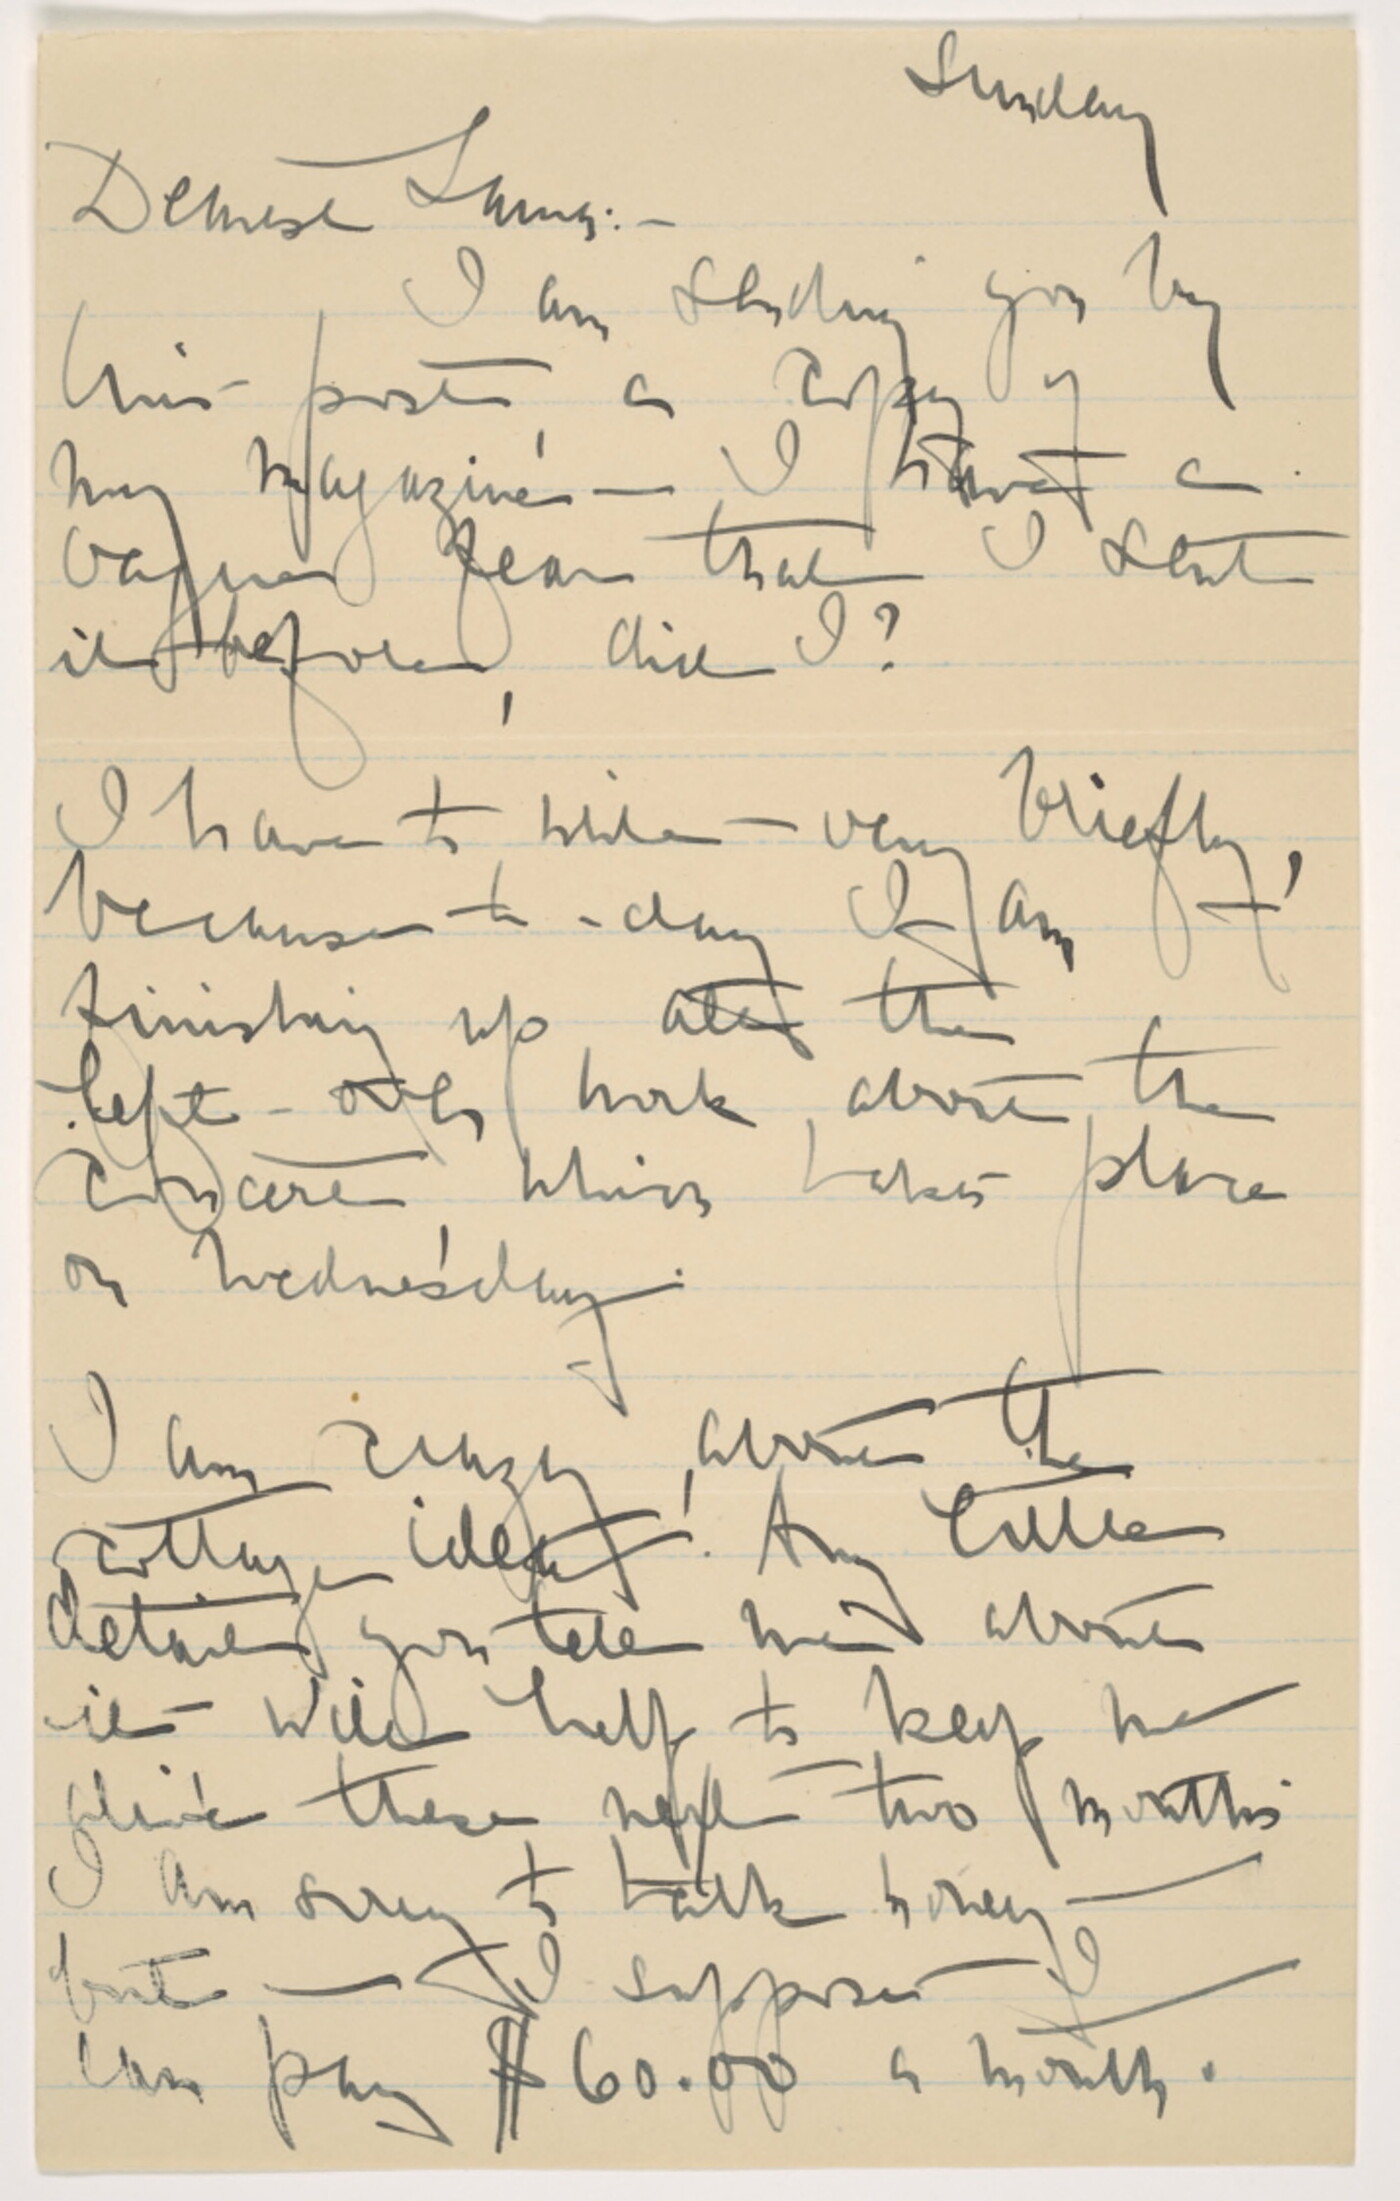 Sunday
Dearest Laura:-
I am sending you by
this post a copy of
my magazine — I have a
vague fear that I sent
it before, did I?
I have to write — very briefly,
because to-day I am
finishing up all the
left-over work about the
concert which takes place
on Wednesday.
I am crazy about the
cottage idea! Any little
detail you tell me about
it will help to keep me
alive these next two months
I am sorry to talk money —
but — I suppose I
can pay $60.00 a month.